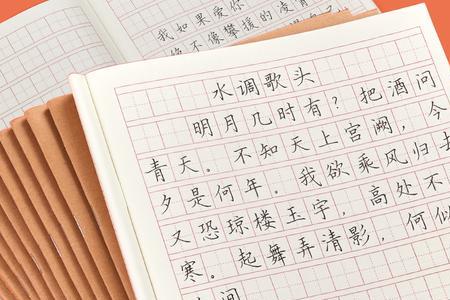 我如果爱你
绝不像攀援的凌霄
水调歌头
明月几时有？把酒问
青天。不知天上宫阙，今
夕是何年。我欲乘风归去
又恐琼楼玉宇，高处不
寒。起舞弄清影，何似
间